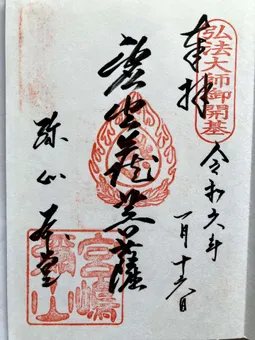 弘法大師御開基
奉拝
令和六年
一月十六日
虚空蔵菩薩
弥山
本堂
宮嶋
彌山